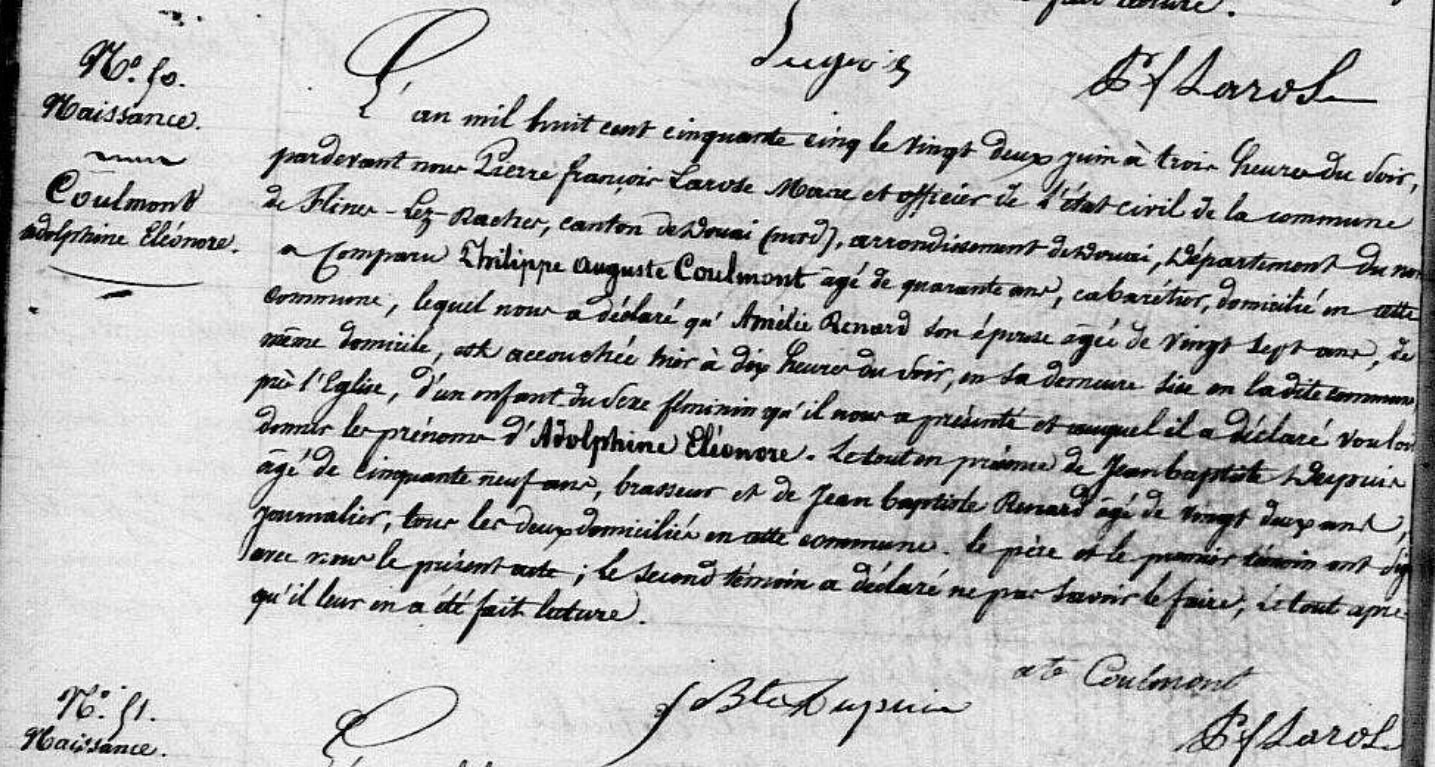 fait lecture.
Dupuis
Pf Larose
N.° 50.
Naissance.
Coulmont
Adolphine Eléonore.
L'an mil huit cent cinquante cinq le vingt deux juin à trois heures du soir,
pardevant nous Pierre françois Larose Maire et officier de l'état civil de la commune
de Flines-Lez-Raches, canton de Douai (nord), arrondissement de Douai, Département du nor
a Comparu Philippe Auguste Coulmont agé de quarante ans, cabarétier, domicilié en cette
commune, lequel nous a déclaré qu'Amélie Renard son épouse agée de vingt sept ans, de
même domicile, est accouchée hier à dix heures du soir, en sa demeure sise en la dite commune
près l'Eglise, d'un enfant du sexe féminin qu'il nous a présenté et auquel il a déclaré vouloir
donner les prénoms d'Adolphine Eléonore. Le tout en présence de Jean baptiste Dupuis
âgé de cinquante neuf ans, brasseur et de Jean baptiste Renard âgé de vingt deux ans,
journalier, tous les deux domiciliés en cette commune. Le père et le premier témoin ont sig
avec nous le présent acte; le second témoin a déclaré ne pas savoir le faire, Le tout après
qu'il leur en a été fait lecture.
ate Coulmont
J Bte Dupuis
Pf Larose
N.° 51.
Naissance.